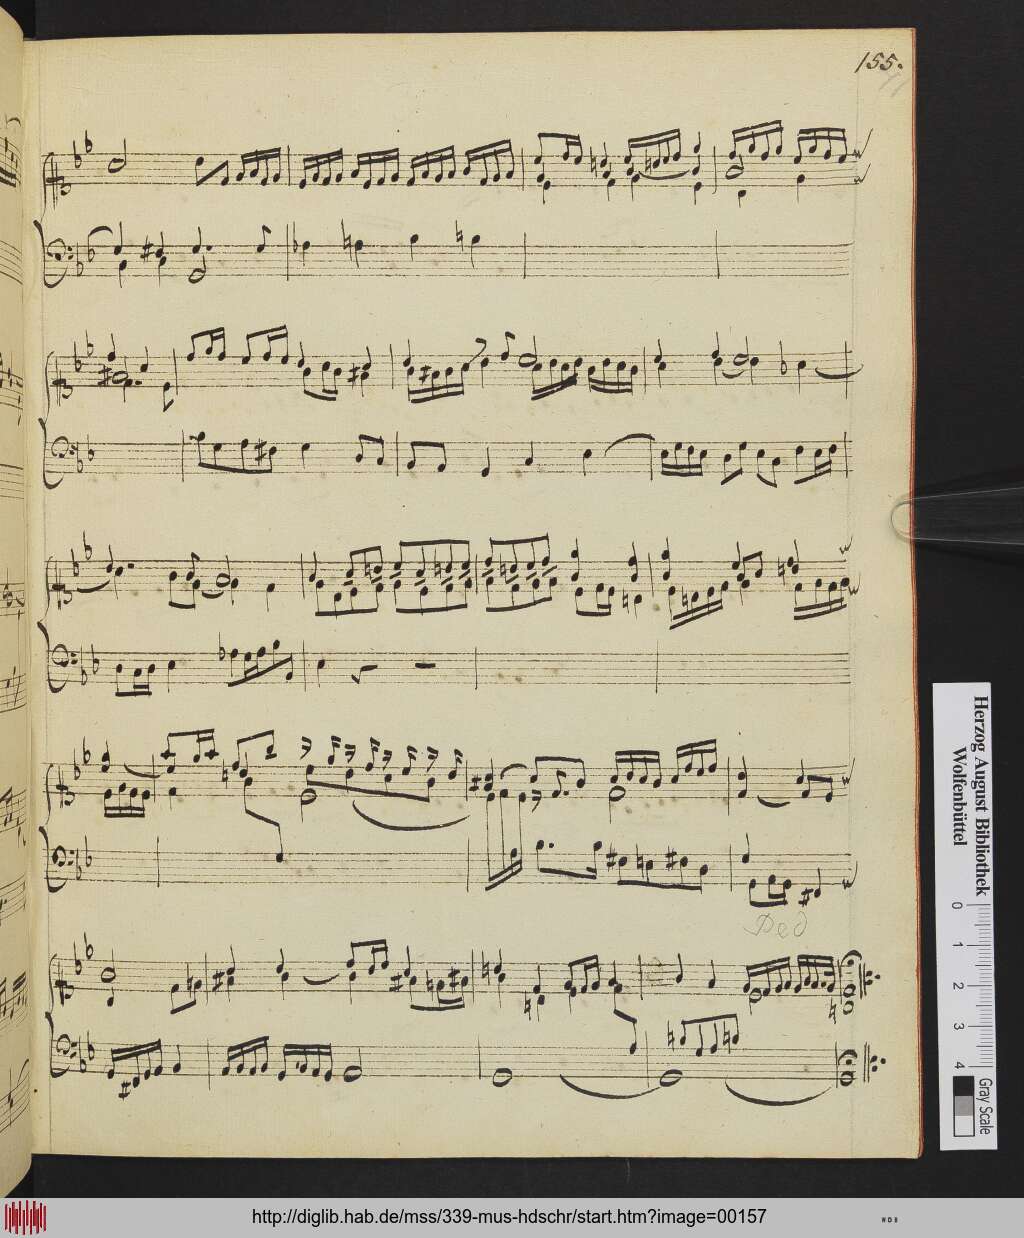 155.
Ped
Herzog August Bibliothek
Wolfenbüttel
0 1 2 3 4
Gray Scale
http://diglib.hab.de/mss/339-mus-hdschr/start.htm?image=00157
WDB